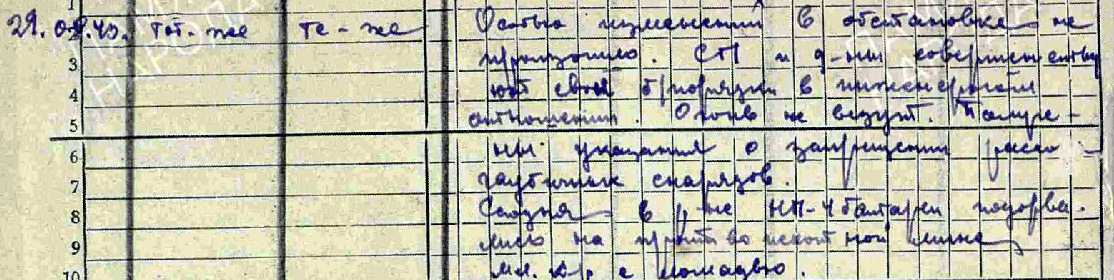 29.08.43. тот-же те-же Особых изменений в обстановке не
3 произошло. СП и д-ны совершенству
4 ют свои б/порядки в инженерном
5 отношении. Огонь не ведут. Получе-
6 ны указания о запрещении расхо
7 гаубичных снарядов.
8 Сегодня в р-не НП-4 батареи подорва-
9 лись на противопехотной мине
10 мл. к-р с лошадью.